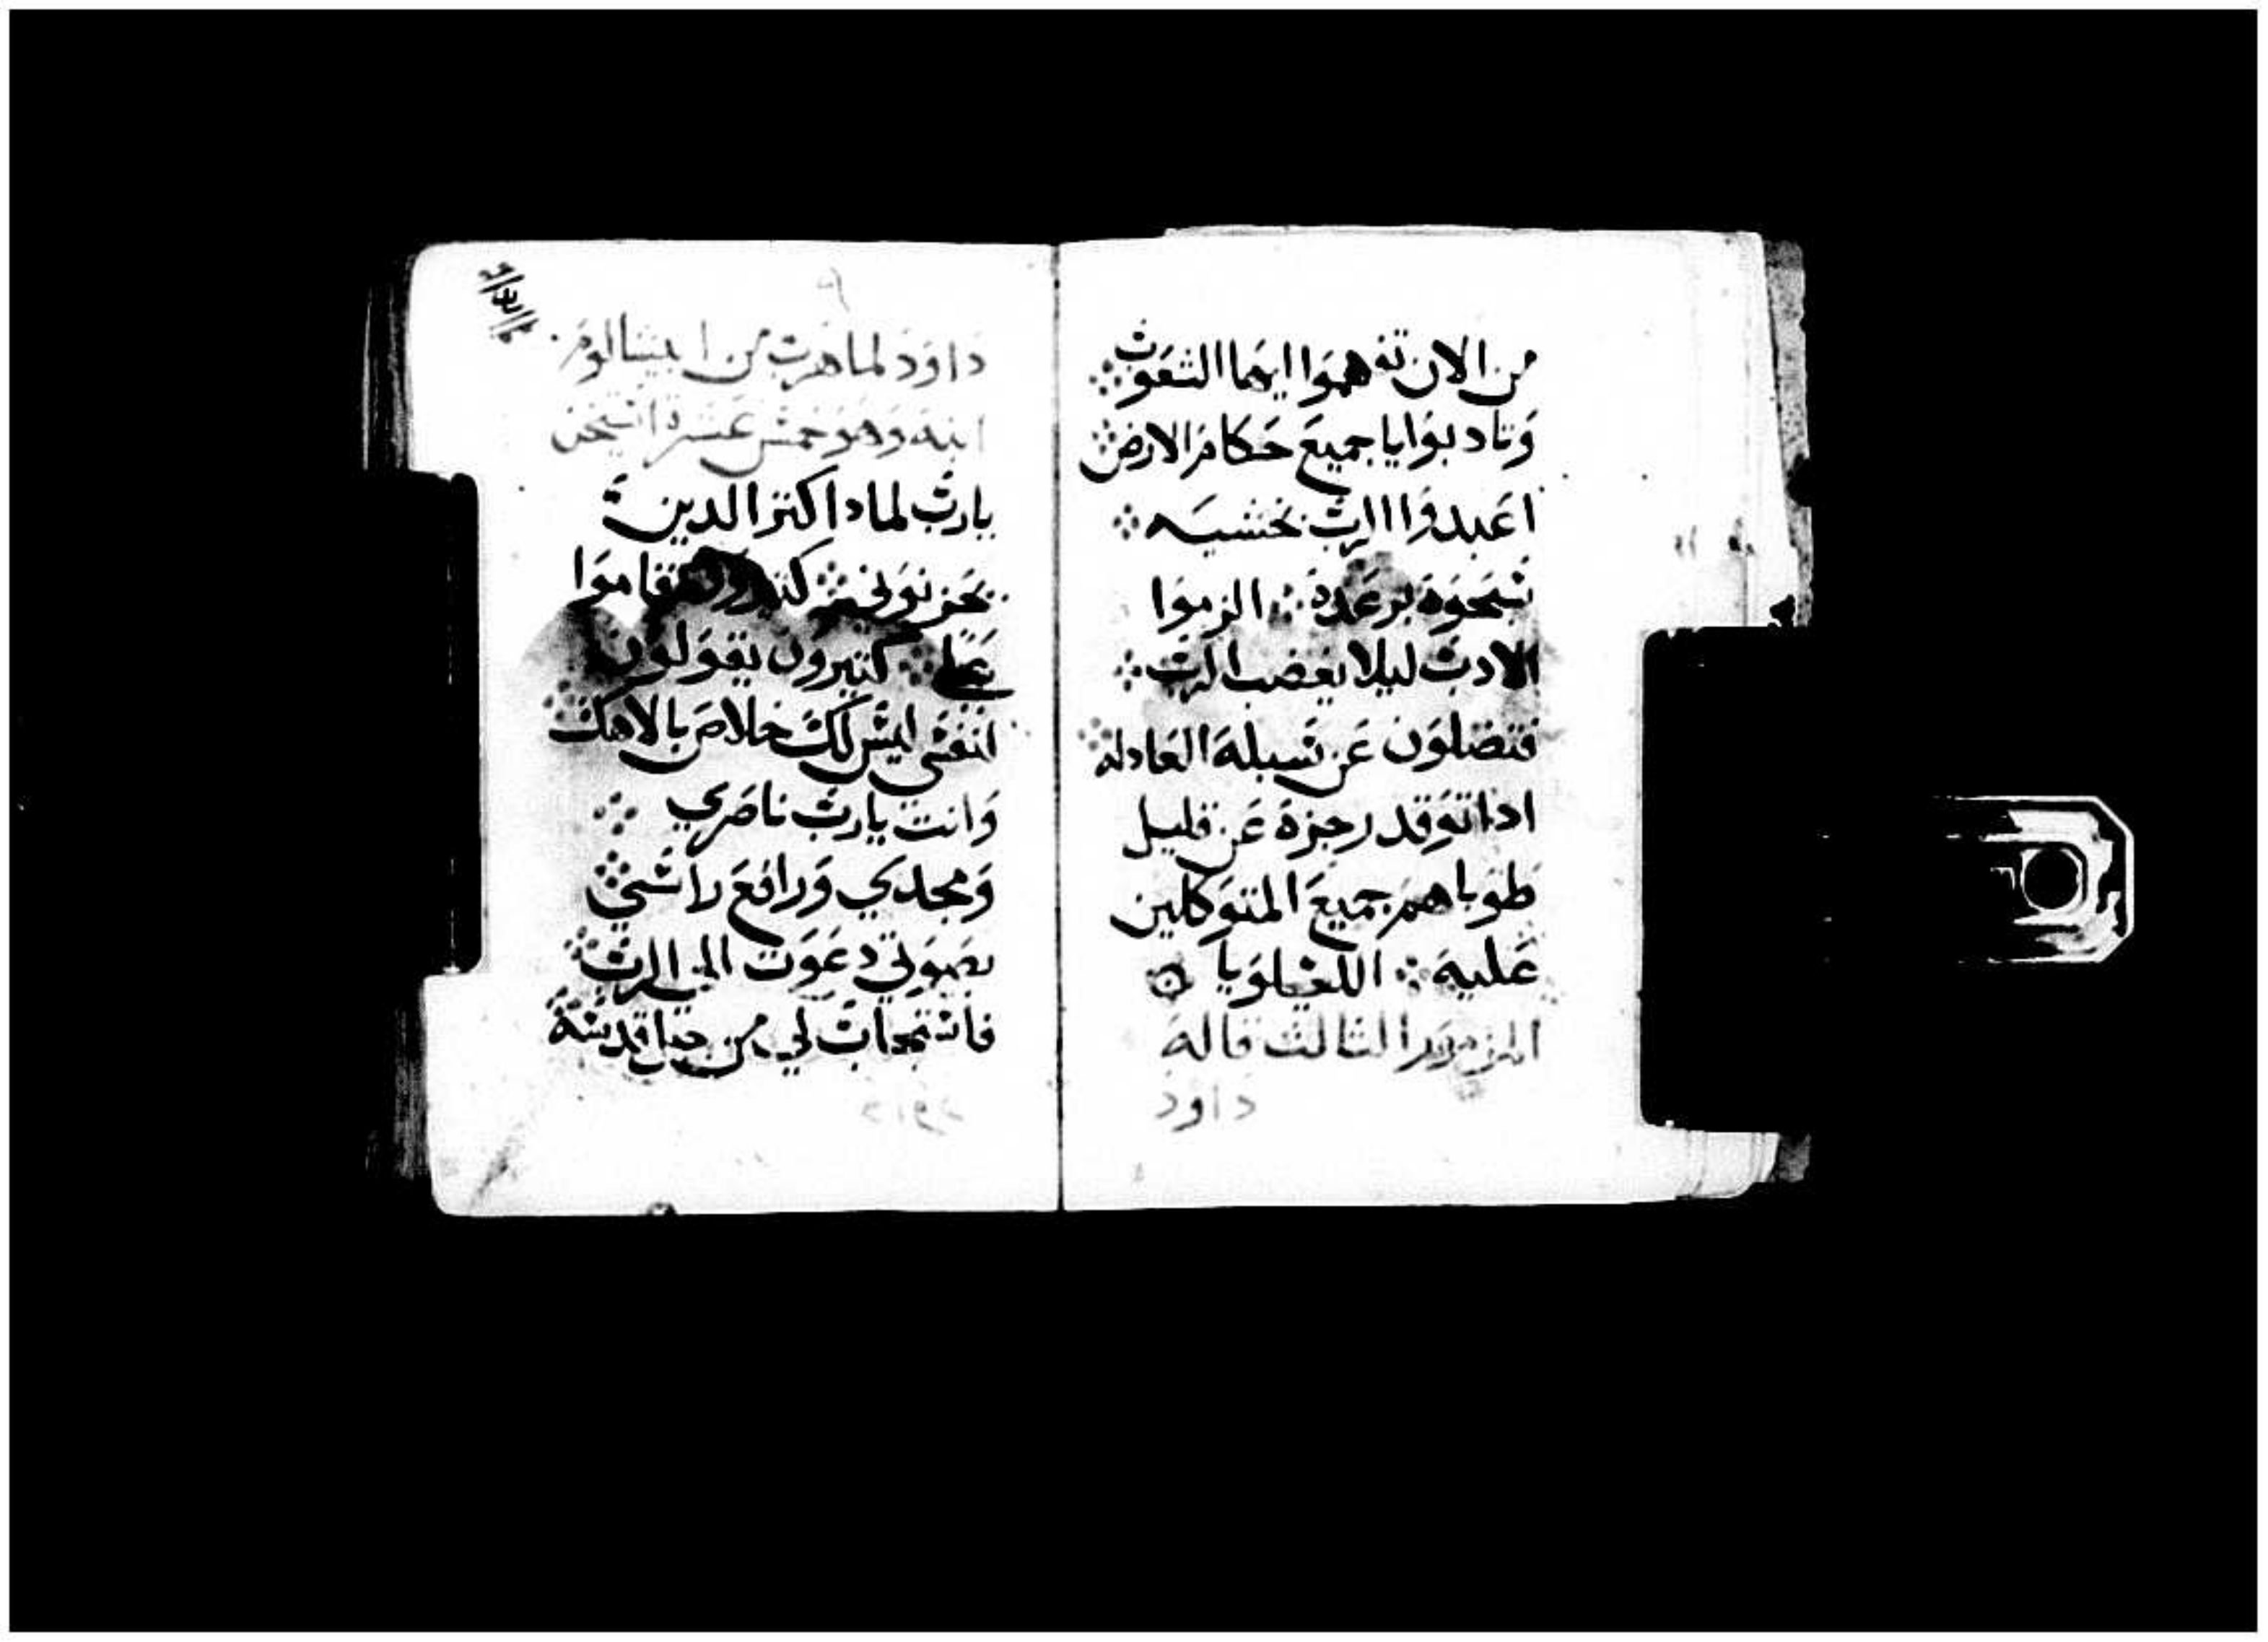 من الان تفهموا ايها الشعوب
وتادبوا يا جميع حكام الارض
اعبدوا الرب بخشيه
سبحوه برعده الزموا
الادب ليلا يغضب الرب
فتضلون عن سبله العادله
اذا توقد رجزه عن قليل
طوباهم جميع المتوكلين
عليه الليلويا
المزمور الثالث قاله
داود
٩
داود لما هرب من ابيشالوم
ابنه وهو خمس عشرة استيخن
يارب لمادا كتر الدين
يحزنوني كتيرون قاموا
علي كتيرون يقولون
لنفسى ليس لك خلاص بالاهك
وانت يارب ناصري
ومجدي ورافع راسي
بصوتي دعوت الى الرب
فاستجاب لي من جبل قدسه